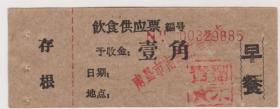 存根
飲食供应票 編号
00329885
予收金：壹角
日期：
地点：
早餐